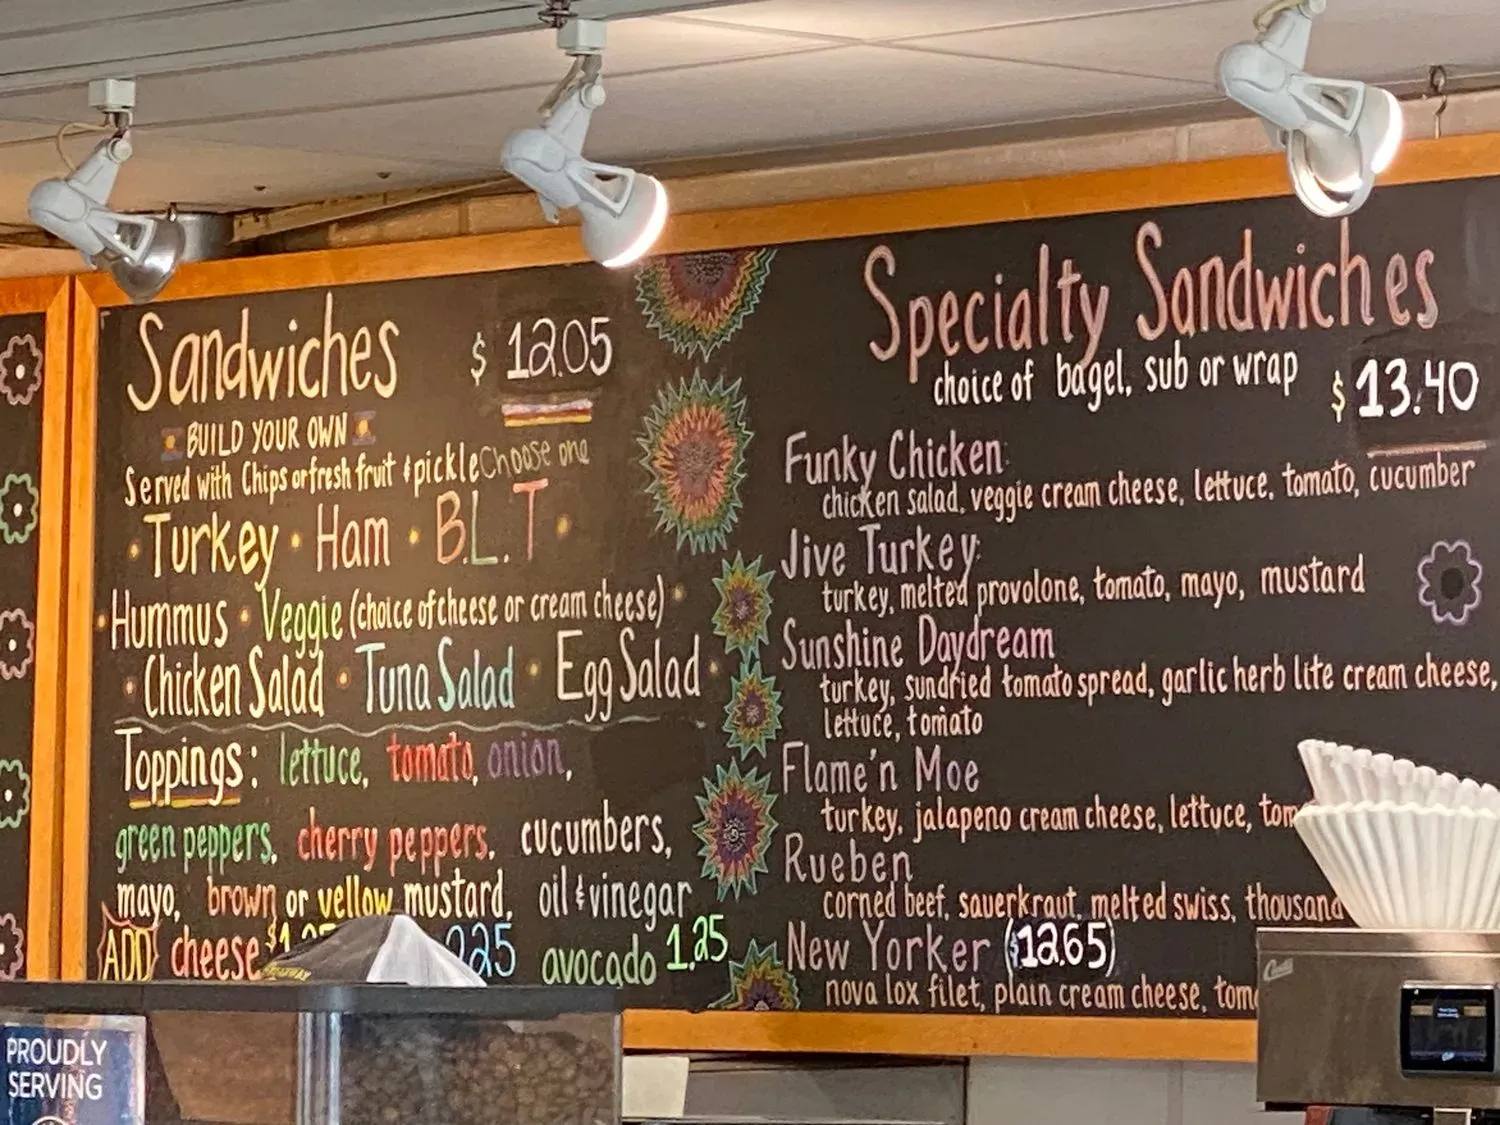 Sandwiches $ 12.05
BUILD YOUR OWN
Served with Chips or fresh fruit & pickle Choose one
· Turkey · Ham · B.L.T ·
· Hummus · Veggie (choice of cheese or cream cheese) ·
· Chicken Salad · Tuna Salad · Egg Salad ·
Toppings: lettuce, tomato, onion,
green peppers, cherry peppers, cucumbers,
mayo, brown or yellow mustard, oil & vinegar
ADD cheese avocado 1.25
Specialty Sandwiches
choice of bagel, sub or wrap $ 13.40
Funky Chicken
chicken salad, veggie cream cheese, lettuce, tomato, cucumber
Jive Turkey
turkey, melted provolone, tomato, mayo, mustard
Sunshine Daydream
turkey, sundried tomato spread, garlic herb lite cream cheese,
lettuce, tomato
Flame'n Moe
turkey, jalapeno cream cheese, lettuce, tom
Rueben
corned beef, sauerkraut, melted swiss, thousand
New Yorker ($12.65)
nova lox filet, plain cream cheese, tom
PROUDLY
SERVING